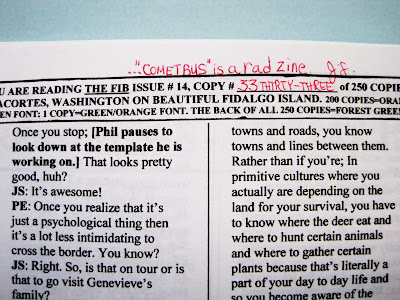 ..."COMETBUS" is a rad zine J.F.
U ARE READING THE FIB ISSUE # 14, COPY # 33 THIRTY-THREE of 250 COPIES
ACORTES, WASHINGTON ON BEAUTIFUL FIDALGO ISLAND. 200 COPIES=ORAN
EN FONT: 1 COPY=GREEN/ORANGE FONT. THE BACK OF ALL 250 COPIES=FOREST GREE
Once you stop; [Phil pauses to
look down at the template he is
working on.] That looks pretty
good, huh?
JS: It's awesome!
PE: Once you realize that it's
just a psychological thing then
it's a lot less intimidating to
cross the border. You know?
JS: Right. So, is that on tour or is
that to go visit Genevieve's
family?
towns and roads, you know
towns and lines between them.
Rather than if you're; In
primitive cultures where you
actually are depending on the
land for your survival, you have
to know where the deer eat and
where to hunt certain animals
and where to gather certain
plants because that's literally a
part of your day to day life and
so you become aware of the